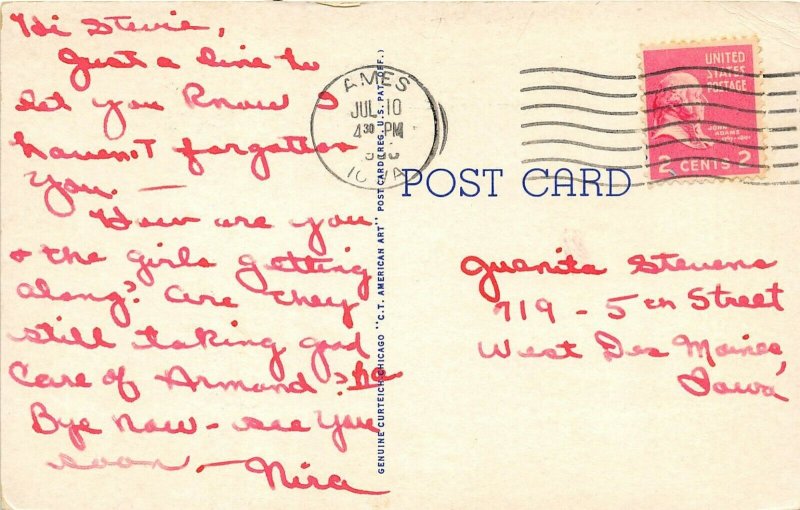 Hi Stevie,
Just a line to
let you know I
haven't forgotten
you. —
How are you
& the girls getting
along? Are they
still taking good
care of Armond? ha
Bye now - see you
soon - Nira
GENUINE CURTEICH-CHICAGO "C.T. AMERICAN ART" POST CARD (REG. U.S. PAT. OFF.)
AMES
JUL 10
4 30 PM
IOWA
UNITED
STATES
POSTAGE
JOHN
ADAMS
2 CENTS 2
POST CARD
Juanita Stevens
719 - 5th Street
West Des Moines,
Iowa